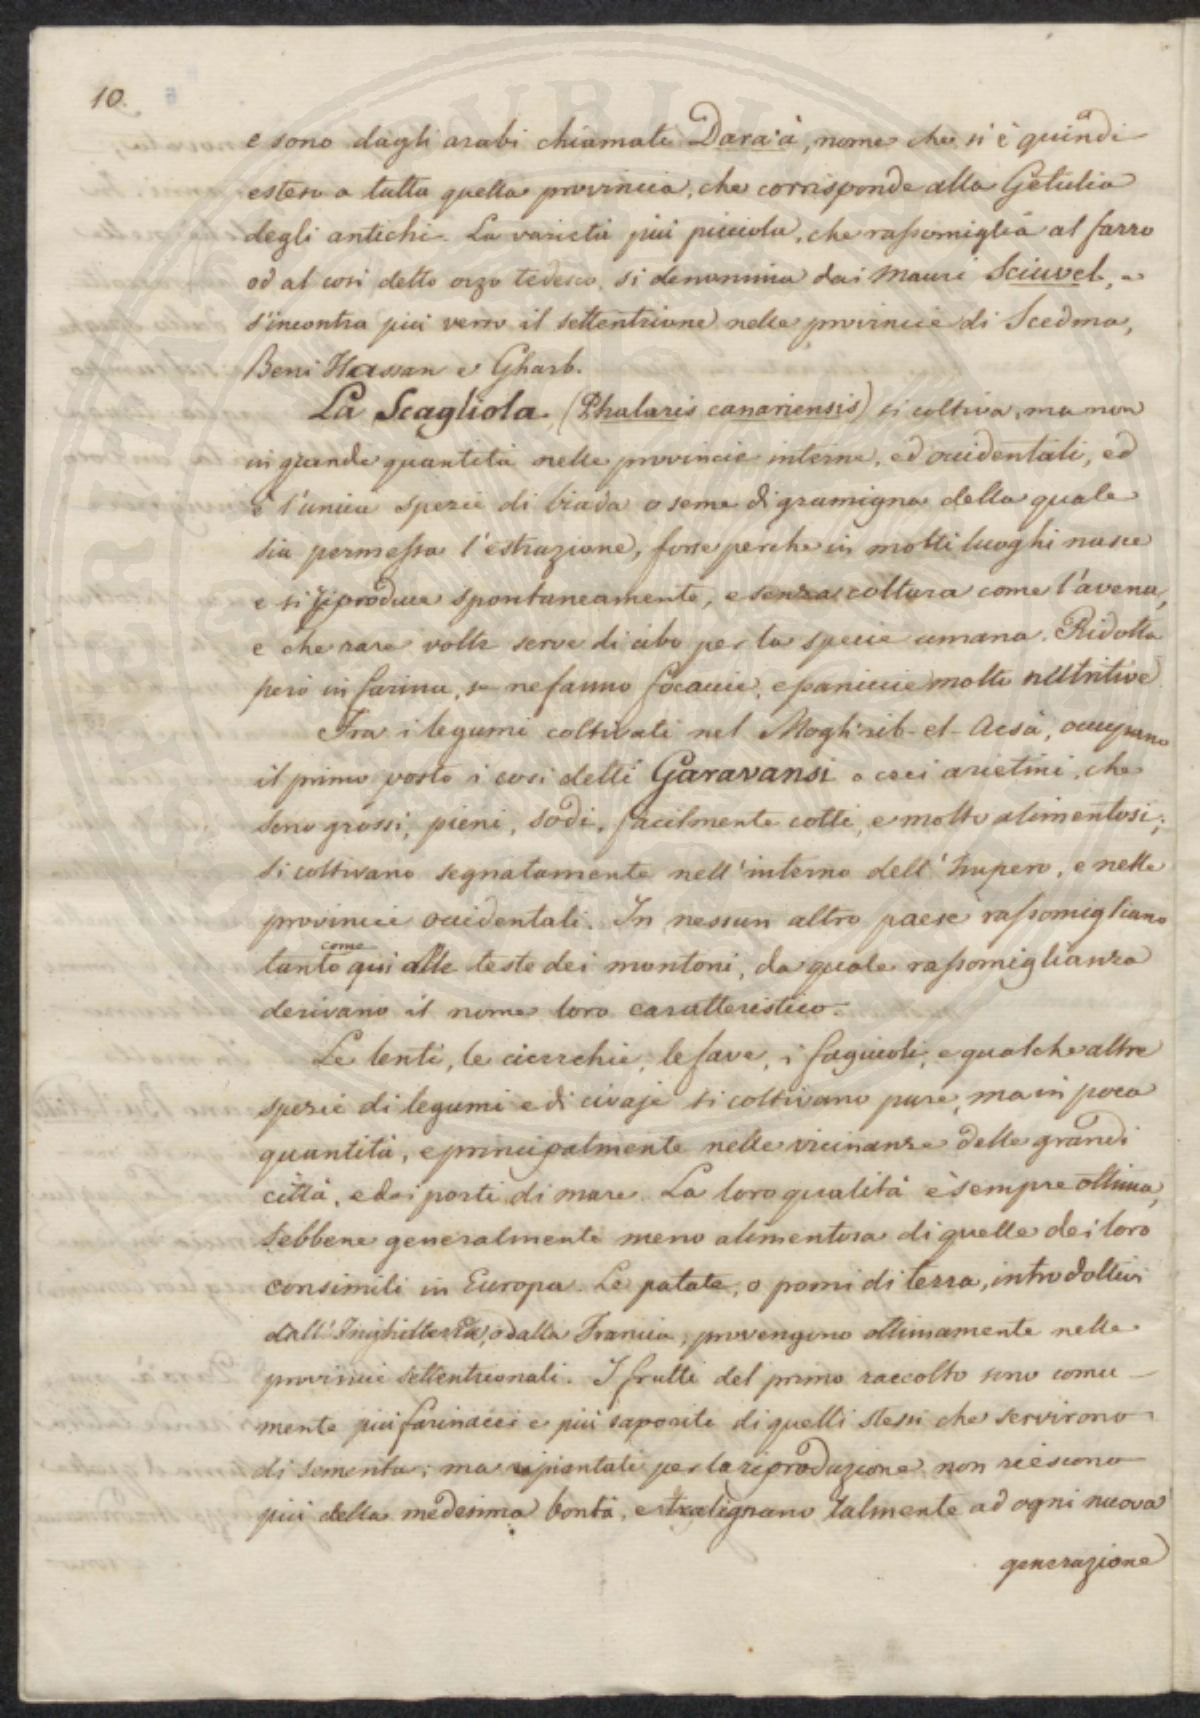 10.
e sono dagli arabi chiamate Dara'à, nome che si è quindi
esteso a tutta quella provincia, che corrisponde alla Getulia
degli antichi. La varietà più picciola, che rassomiglia al farro
od al così detto orzo tedesco, si denomina dai Mauri Sciuvel, e
s'incontra più verso il settentrione nelle provincie di Scedma,
Beni Hassan e Gharb.
La Scagliola. (Phalaris canariensis) si coltiva, ma non
in grande quantità nelle provincie interne, ed occidentali, ed
è l'unica spezie di biada o seme di gramigna della quale
sia permessa l'estrazione, forse perche in molti luoghi nasce
e si riproduce spontaneamente, e senza coltura come l'avena,
e che rare volte serve di cibo per la specie umana. Ridotta
però in farina, se ne fanno focaccie, e paniccie molto nutritive
Fra i legumi coltivati nel Moghrib-el-Acsà, occupano
il primo posto i così detti Garavansi o ceci arietini, che
sono grossi, pieni, sodi, facilmente cotti, e molto alimentosi;
si coltivano segnatamente nell'interno dell'Impero, e nelle
provincie occidentali. In nessun altro paese rassomigliano
come
tanto qui alle teste dei montoni, da quale rassomiglianza
derivano il nome loro caratteristico.
Le lenti, le cicerchie, le fave, i fagiuoli, e qualche altre
spezie di legumi e di civaje si coltivano pure, ma in poca
quantità, e principalmente nelle vicinanze delle grandi
città, e dei porti di mare. La loro qualità è sempre ottima,
sebbene generalmente meno alimentosa di quelle dei loro
consimili in Europa. Le patate, o pomi di terra, introdottivi
dall'Inghilterra, o dalla Francia, provengono ottimamente nelle
provincie settentrionali. I frutti del primo raccolto sono comu-
mente più farinacei e più saporiti di quelli stessi che servirono
di sementa; ma ripiantati per la riprodazione non riescono
più della medesima bontà, e tralignano talmente ad ogni nuova
generazione